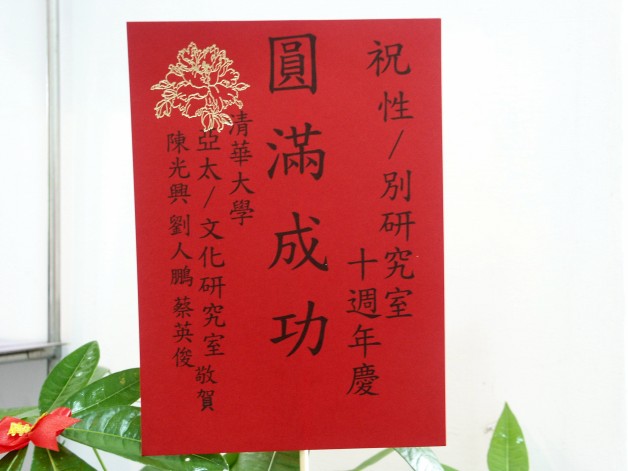 祝性/別研究室
十週年慶
圓滿成功
清華大學
亞太/文化研究室敬賀
陳光興 劉人鵬 蔡英俊